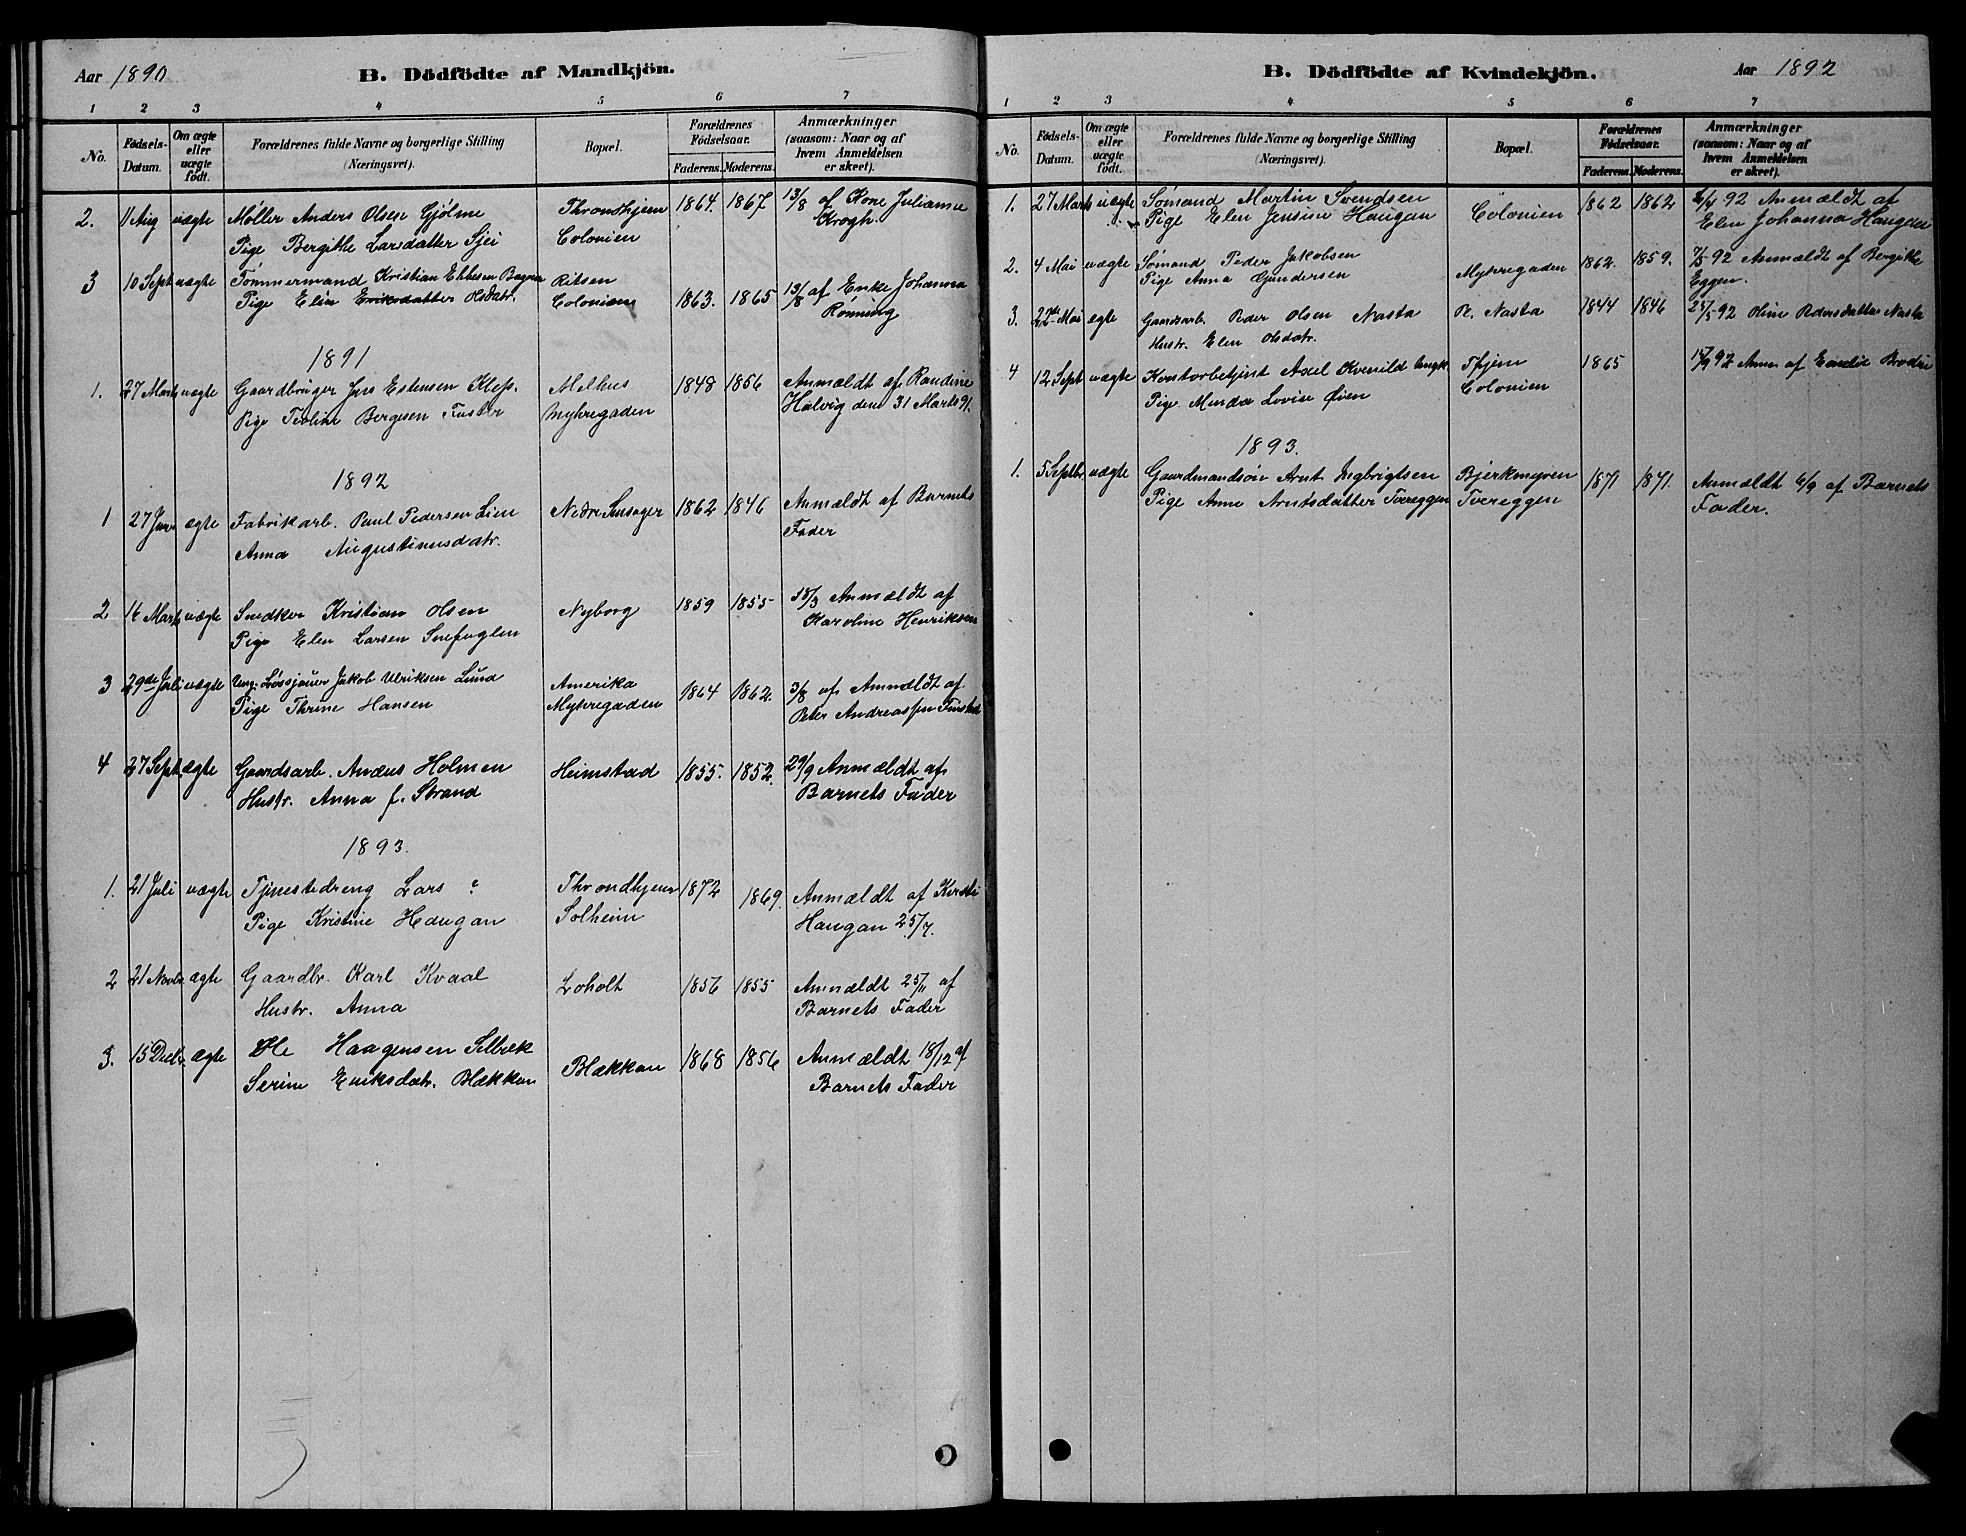 Aar 1890
B. Dödfödte af Mandkjön.
1 2 3 4 5 6 7
No.
Födsels-Datum.
Om ægte eller uægte födt.
Forældrenes fulde Navne og borgerlige Stilling (Næringsvei).
Bopæl.
Forældrenes Födselsaar.
Faderens. Moderens.
Anmærkninger (saasom: Naar og af hvem Anmeldelsen er skeet).
2. 11 Aug uægte Møller Anders Olsen Gjølme Throndhjem 1864. 1867 13/8 af Kone Julianna
Pige Bergitte Larsdatter Sjei Colonien Krogh.
3 10 Sept uægte Tömmermand Kristian Ebbesen
Pige Elen Eriksdatter Olsdatr. Colonien 1863. 1865 13/8 af Enke Johanna
Rønning
1891
1. 27 Marts uægte Gaardbruger Jens Estensen Klefs. Melhus 1848 1856 Anmældt af Randine
Pige Bergesen Myhregaden Halvig den 31 Marts 91.
1892
1 27 ægte Fabrikarb. Paul Pedersen Lien Nedre 1862 1846 Anmældt af Barnets
Anna Augustinusdatr. Fader
2 16 Marts uægte Snedker Kristian Olsen Nyborg 1859 1855 18/3 Anmældt af
Pige Elen Larsen Snefuglen Karoline Henriksen
3 29de Juli uægte Ung. Løssjauer Jakob Ulriksen Lund Amerika 1864 1862. 3/8 af Anmældt af
Pige Thrine Hansen Myhregaden Peter Andreassen
4 27 Sept. ægte Gaardsarb. Andeus Holmen Heimstad 1855. 1852. 29/9 Anmældt af
Hustr. Anna f. Strand Barnets Fader
1893.
1. 21 Juli uægte Tjenestedreng Lars ? Throndhjem 1872 1869. Anmældt af Kirsti
Pige Kristine Haugan Solheim Haugan 25/7.
2 21 Novbr ægte Gaardbr. Karl Kvaal Loholt 1856 1855 Anmældt 25/11 af
Hustr. Anna Barnets Fader
3. 15 Decbr ægte Ole Haagensen Selbæk Blækkan 1868 1856 Anmældt 18/12 af
Serine Eriksdatr. Blækkan Barnets Fader
B. Dödfödte af Kvindekjön.
Aar 1892
1 2 3 4 5 6 7
No.
Födsels-Datum.
Om ægte eller uægte födt.
Forældrenes fulde Navne og borgerlige Stilling (Næringsvei).
Bopæl.
Forældrenes Födselsaar.
Faderens. Moderens.
Anmærkninger (saasom: Naar og af hvem Anmeldelsen er skeet).
1. 27 Marts uægte Sømand Martin Svendsen Colonien 1862 1862 92 Anmældt af
Pige Elen Jensine Haugan Elen Johanna Haugan
2. 4 Mai uægte Sømand Peder Jakobsen Myhregaden 1862. 1859. 7/5 92 Anmældt af Bergitte
Pige Anna Gundersen Eggen.
3. 22de Mai ægte Gaardsarb. Peder Olsen Nasta Pl. Nasta 1844 1846 25/5 92 Oline Pedersdatter Nasta
Hustr. Elen Olsdatr.
4 12 Sept uægte Kontorbetjent Axel Kvenild Thjem 1865 15/9 92 Anm af Emilie
Pige Minda Lovise Øien Colonien
1893.
1. 5 Septbr uægte Gaardmandsøn Arnt Ingbrigtsen Bjerkmyren 1871 1871. Anmældt 6/9 af Barnets
Pige Anne Arntsdatter Tvereggen Tvereggen Fader.